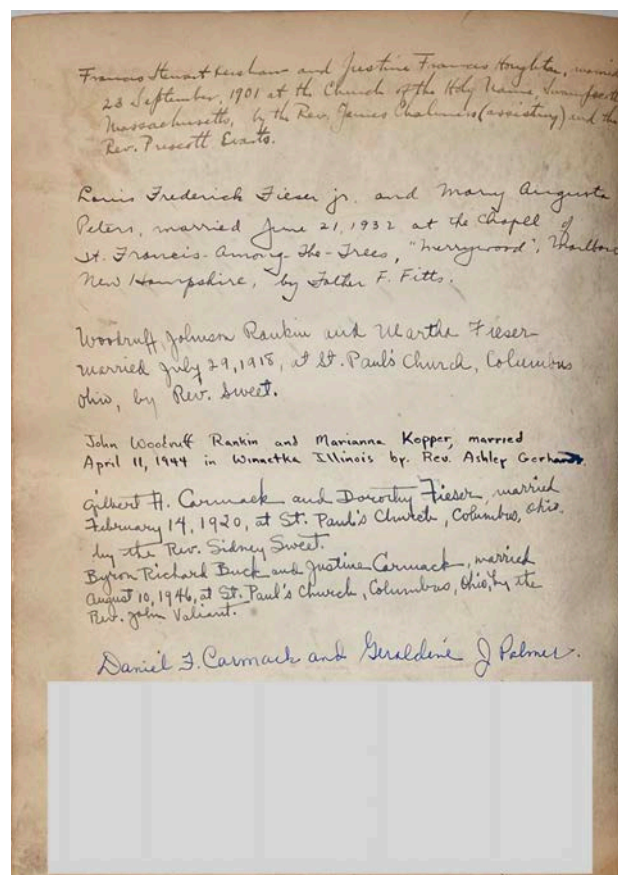 Francis Stewart Kershaw and Justine Frances Houghton, married
23 September, 1901 at the Church of the Holy Name, Swampscott
Massachusetts, by the Rev. James Chalmers (assisting) and the
Rev. Prescott Evarts.
Louis Frederick Fieser jr. and Mary Augusta
Peters, married June 21, 1932 at the Chapel of
St. Francis-Among-The-Trees, "Merrywood",
New Hampshire, by Father F. Fitts.
Woodruff Johnson Rankin and Martha Fieser
married July 29, 1918, at St. Paul's Church, Columbus
Ohio, by Rev. Sweet.
John Woodruff Rankin and Marianna Kopper, married
April 11, 1944 in Winnetka Illinois by Rev. Ashley
Gilbert H. Carmack and Dorothy Fieser, married
February 14, 1920, at St. Paul's Church, Columbus, Ohio.
by the Rev. Sidney Sweet.
Byron Richard Buck and Justine Carmack, married
August 10, 1946, at St. Paul's Church, Columbus, Ohio, by the
Rev. John Valiant.
Daniel F. Carmack and Geraldine J Palmer.